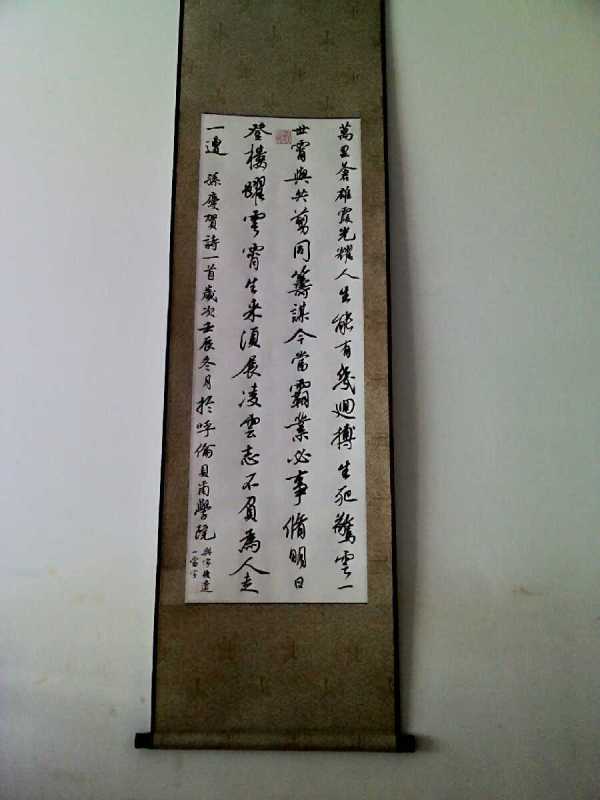 萬里蒼雄霞光耀人生能有幾迴搏生死驚雲一
世宵與共剪同籌謀今當霸業必事脩明日
登樓耀雲霄生來須展凌雲志不負為人走
一邊 孫慶賀詩一首歲次壬辰冬月於呼倫貝爾學院
與字後遺
一當字